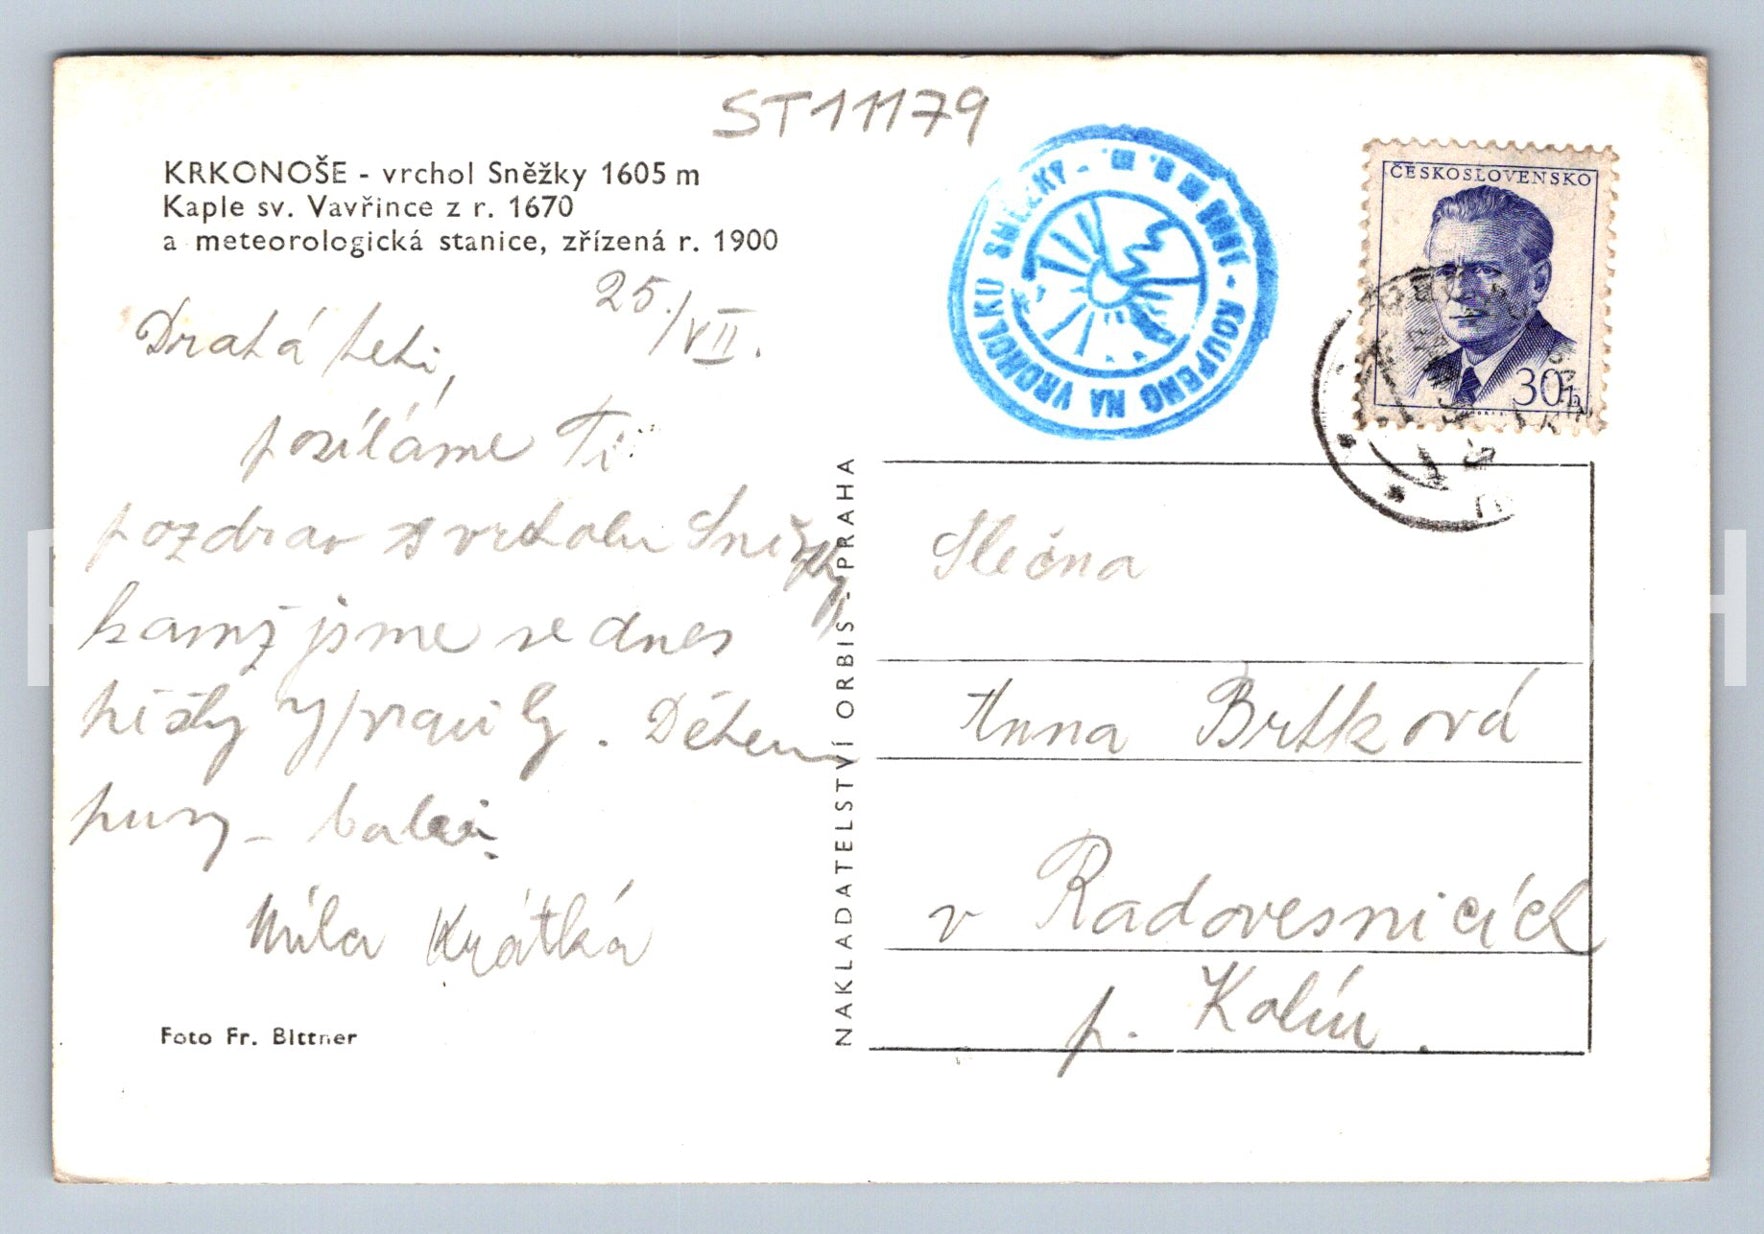 ST11179
KRKONOŠE - vrchol Sněžky 1605 m
Kaple sv. Vavřince z r. 1670
a meteorologická stanice, zřízená r. 1900
25./VII.
Drahá teti,
posíláme Ti
pozdrav s vrcholu Sněžky
kamž jsme se dnes
pěšky vypravily. Dětem
pusy -
Míla Krátká
Foto Fr. Bittner
NAKLADATELSTVÍ ORBIS - PRAHA
KOUPENO NA VRCHOLKU SNĚŽKY -
ČESKOSLOVENSKO
30h
Slečna
Anna Brtková
v Radovesnicích
p. Kolín.
H